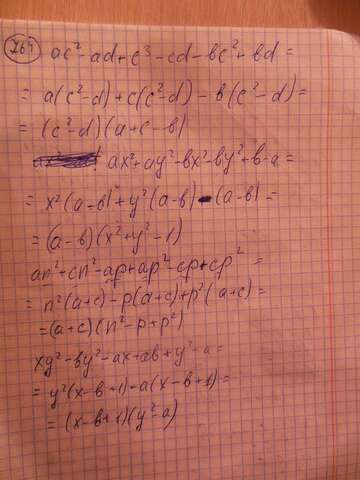 764
ac² - ad + c³ - cd - вc² + вd =
= a(c² - d) + c(c² - d) - в(c² - d) =
= (c² - d)(a + c - в)
ax² + ay² - вx² - вy² + в - a =
= x²(a - в) + y²(a - в) - (a - в) =
= (a - в)(x² + y² - 1)
an² + cn² - ap + ap² - cp + cp² =
= n²(a + c) - p(a + c) + p²(a + c) =
= (a + c)(n² - p + p²)
xy² - вy² - ax + aв + y² - a =
= y²(x - в + 1) - a(x - в + 1) =
= (x - в + 1)(y² - a)